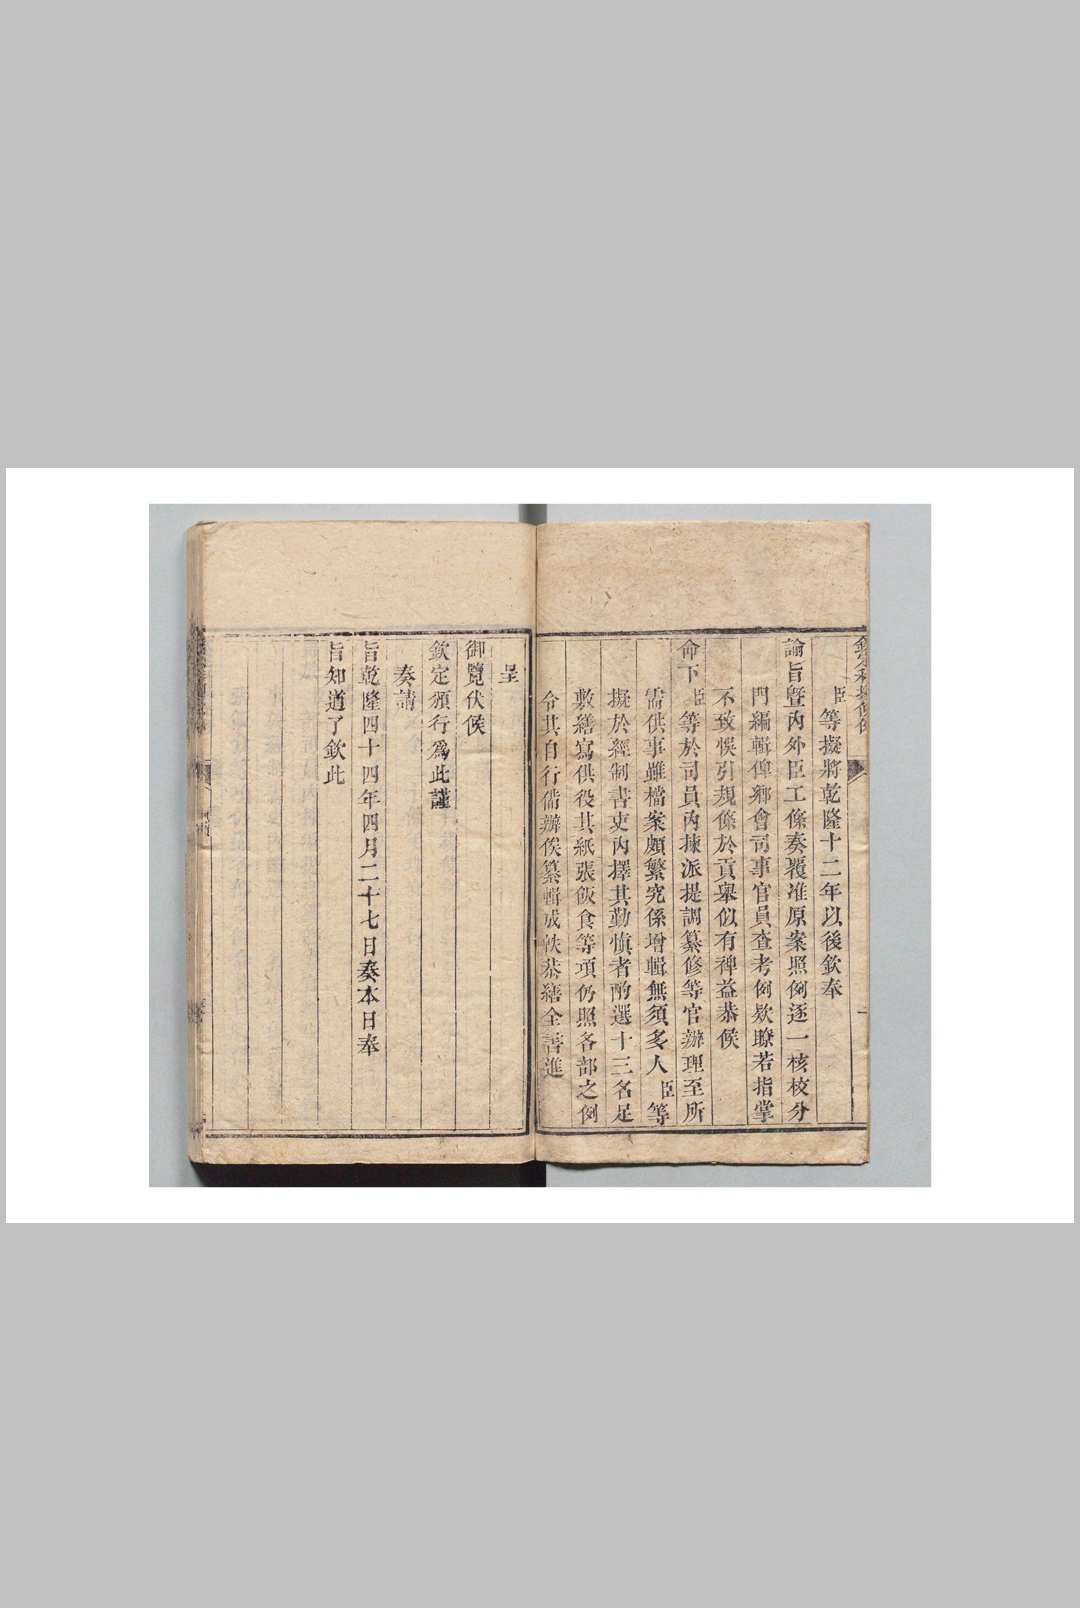 欽定科場條例
一
臣等擬將乾隆十二年以後欽奉
諭旨曁內外臣工條奏覆准原案照例逐一核校分
門編輯俾鄕會司事官員查考例欵瞭若指掌
不致悞引規條於貢舉似有裨益恭候
命下臣等於司員內揀派提調纂修等官辦理至所
需供事雖檔案頗繁究係增輯無須多人臣等
擬於經制書吏內擇其勤愼者酌選十三名足
敷繕寫供役其紙張飯食等項仍照各部之例
令其自行偹辦俟纂輯成帙恭繕全書進
呈
御覽伏候
欽定頒行爲此謹
奏請
旨乾隆四十四年四月二十七日奏本日奉
旨知道了欽此